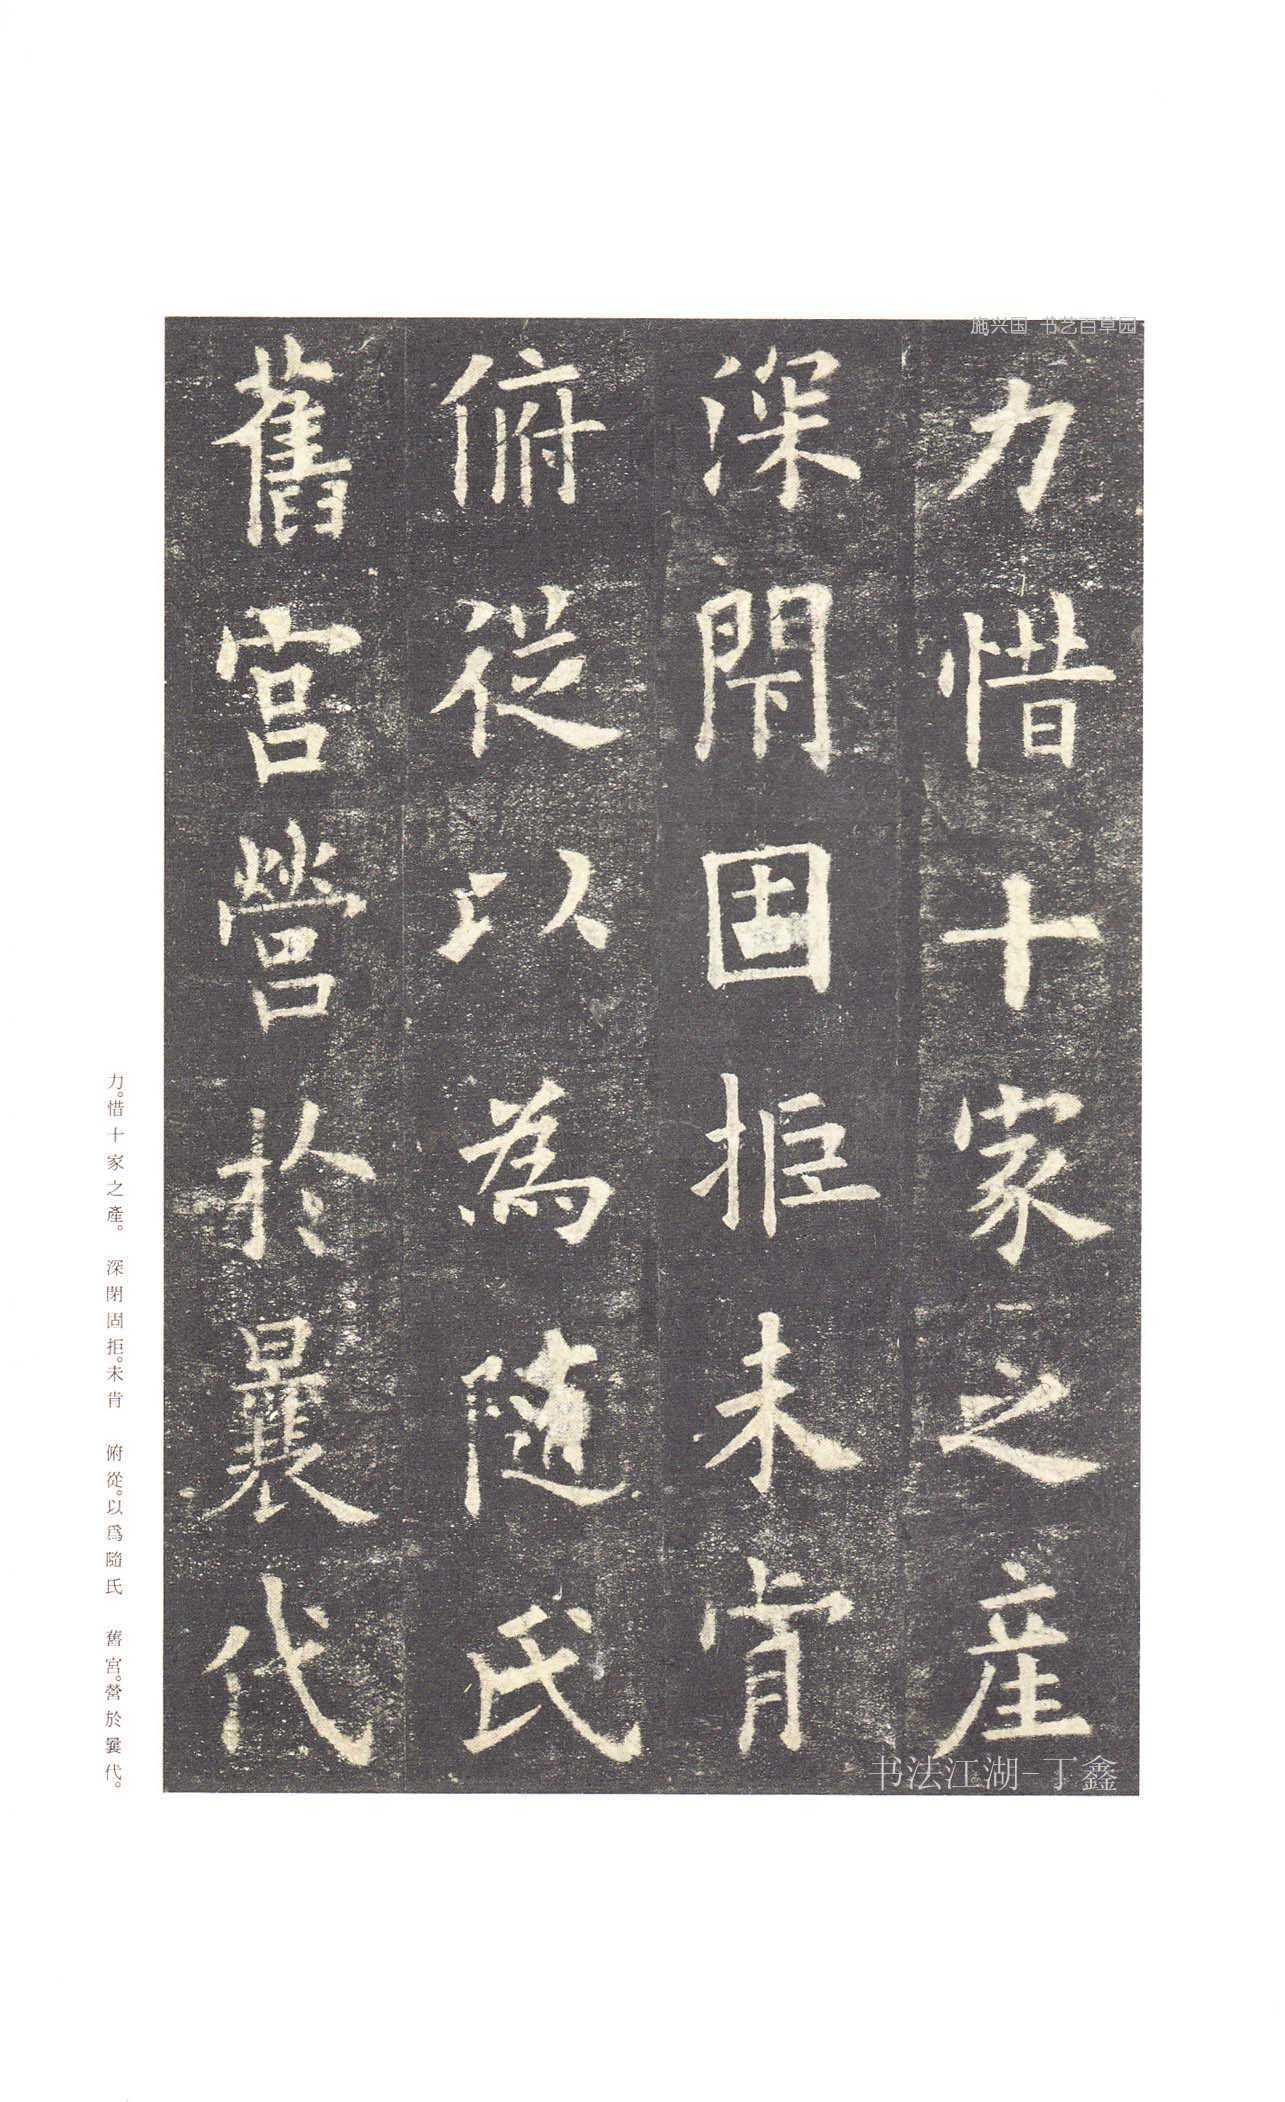 力惜十家之產
深閇固拒未肯
俯從以為隨氏
舊宮營於曩代
力。惜十家之產。 深閉固拒。未肯 俯從。以爲隨氏 舊宮。營於曩代。
施兴国 书艺百草园
书法江湖-丁鑫